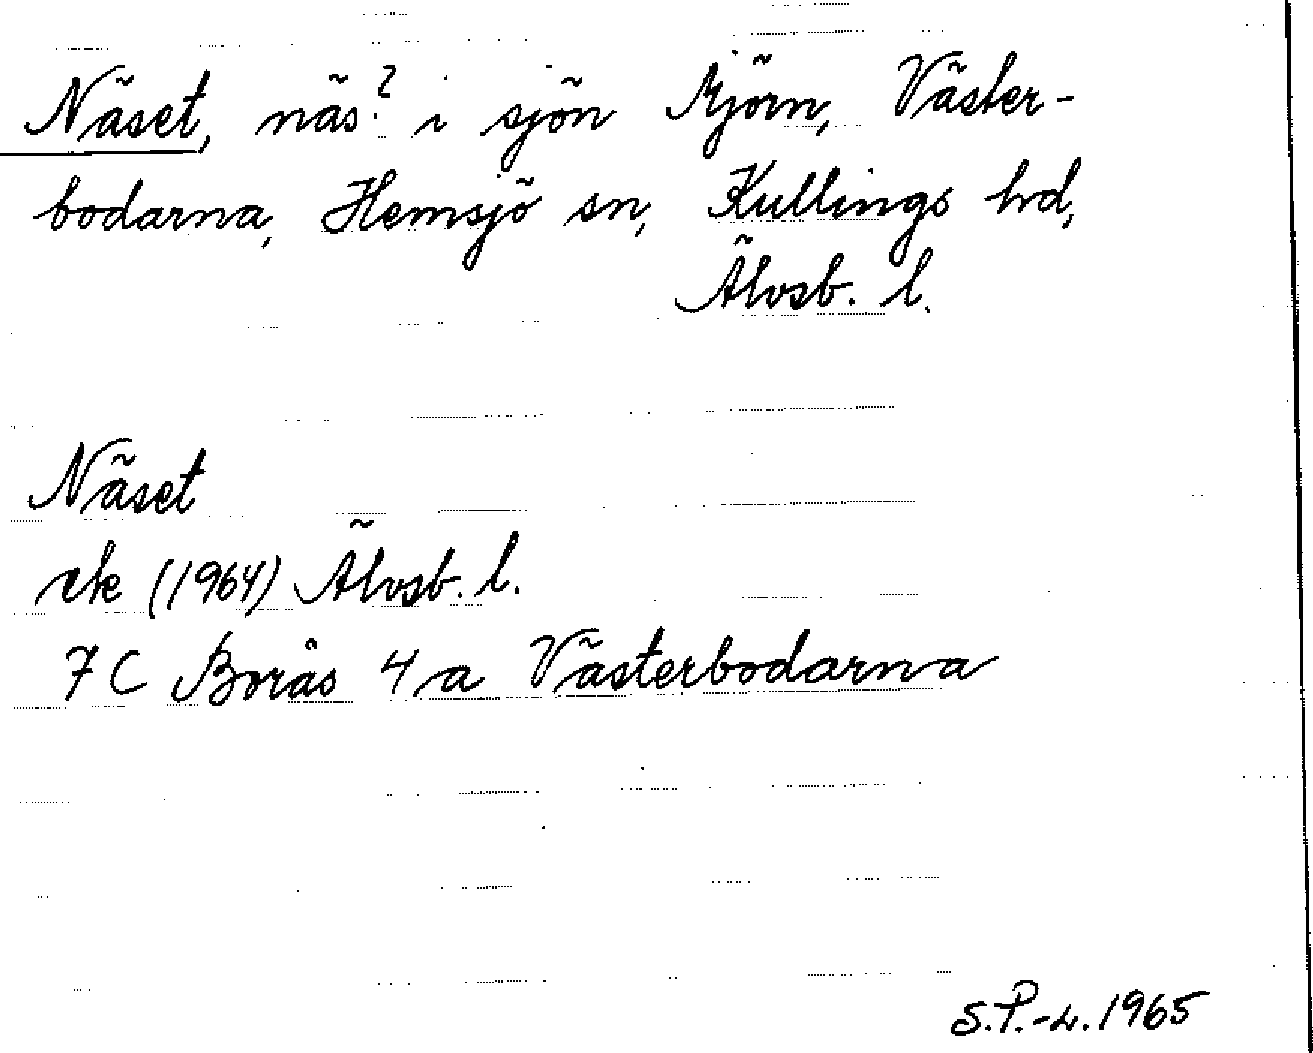 Näset, näs? i sjön Mjörn, Väster-
bodarna, Hemsjö sn, Kullings hd,
Älvsb. l.
Näset
rk (1964) Älvsb. l.
7 C Borås 4 a Västerbodarna
S.P.-L. 1965